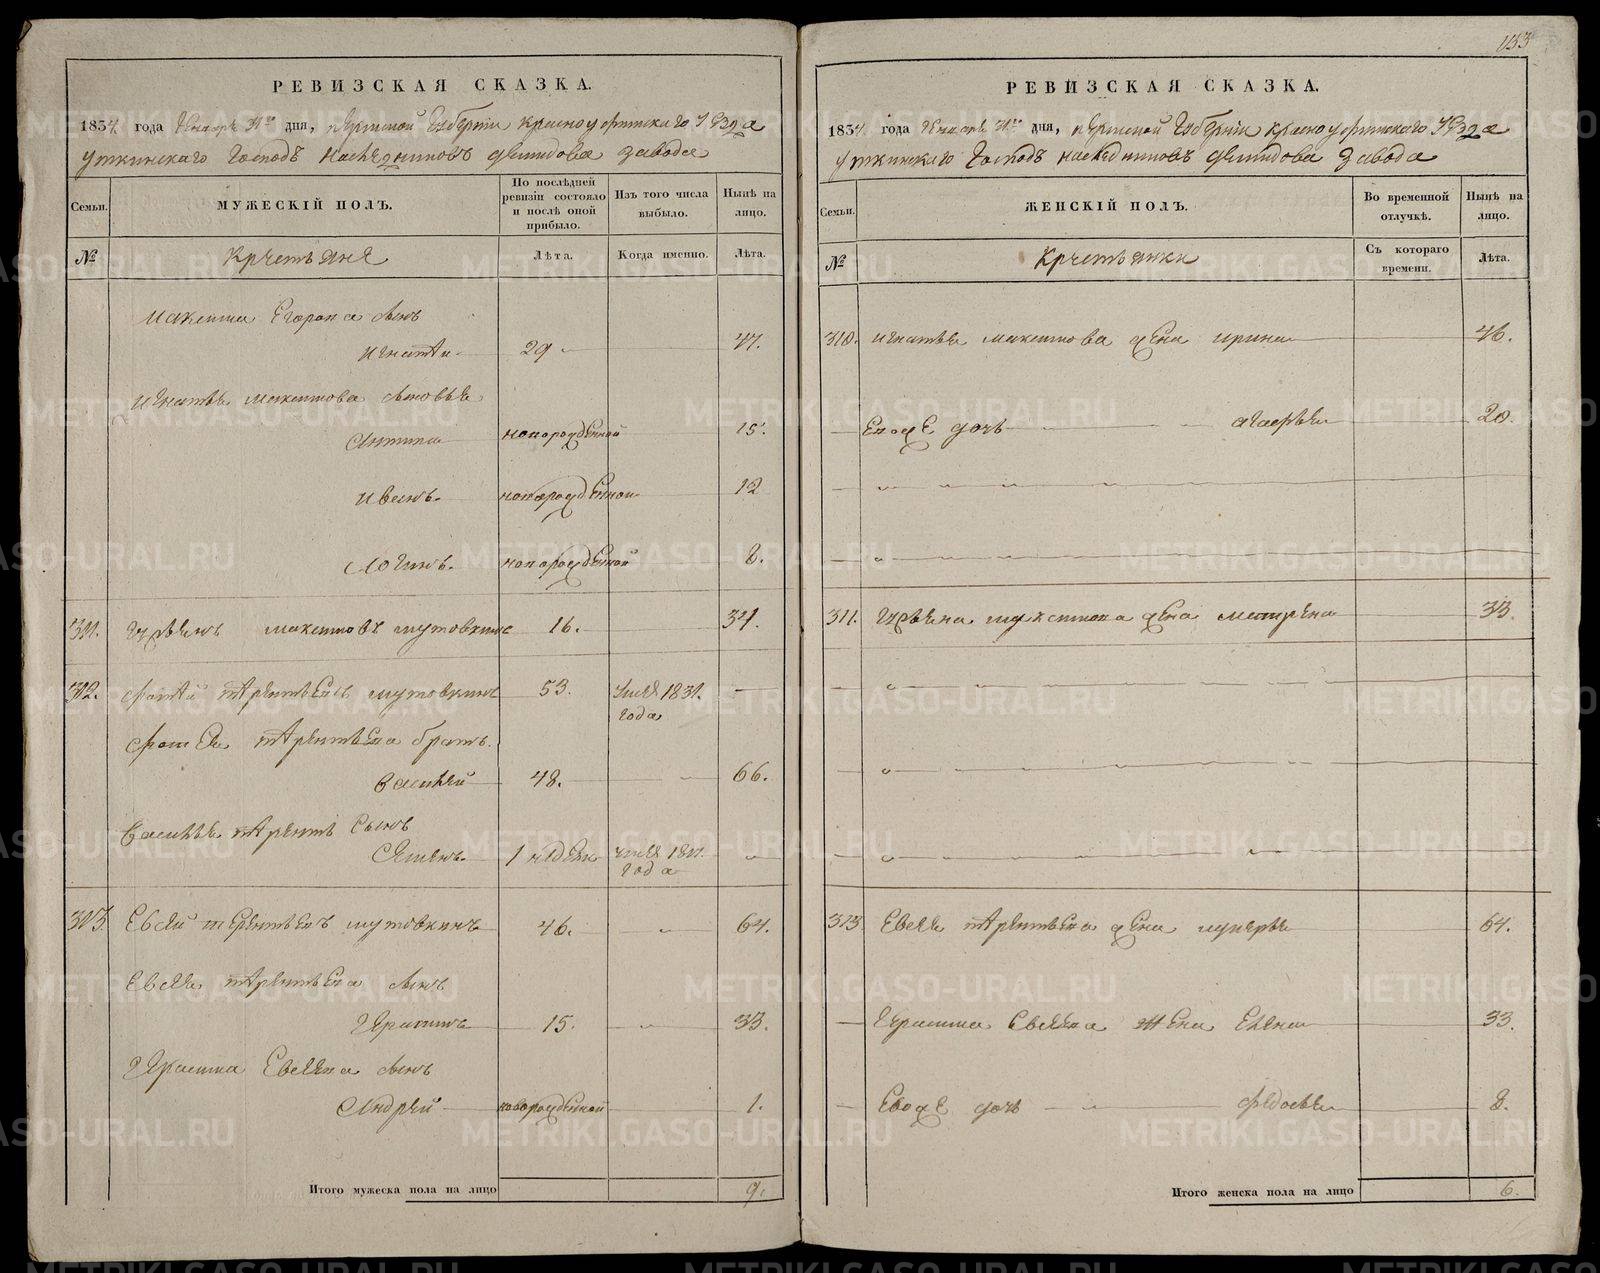 РЕВИЗСКАЯ СКАЗКА.
1834. года дня, пермской губерніи красноуфимскаго уѣзда
уткинскаго господъ наследниковъ демидова завода
Семьи.
МУЖЕСКІЙ ПОЛЪ.
По послѣдней ревизіи состояло и послѣ оной прибыло.
Изъ того числа выбыло.
Нынѣ на лицо.
№
крестьяне
Лѣта.
Когда именно.
Лѣта.
максима егорова сынъ
игнатей 29 47.
игнатья максимова сыновья
Антипа новорожденной 15.
иванъ новорожденной 12
логинъ новорожденной 8.
311. максимовъ шутовкинъ 16. 34.
312. фотей терентьевъ шутовкинъ 53. 1831. года —
фотея терентьева братъ
василей 48. 66.
василья терентьева сынъ
1 недели года
313. евсей терентьевъ шутовкинъ 46. 64.
евсея терентьева сынъ
герасимъ 15. 33.
герасима евсеева сынъ
Андрей новорожденной 1.
Итого мужеска пола на лицо 9.
133
РЕВИЗСКАЯ СКАЗКА.
1834. года дня, пермской губерніи красноуфимскаго уѣзда
уткинскаго господъ наследниковъ демидова завода
Семьи.
ЖЕНСКІЙ ПОЛЪ.
Во временной отлучкѣ.
Нынѣ на лицо.
№
крестьянки
Съ котораго времени.
Лѣта.
310. игнатья максимова жена ирина 46.
его же дочь агафья 20.
311. максимова жена матрена 33.
313 евсея терентьева жена лукерья 64.
герасима евсеева жена елена 33.
его же дочь федосья 8.
Итого женска пола на лицо 6.
METRIKI.GASO-URAL.RU